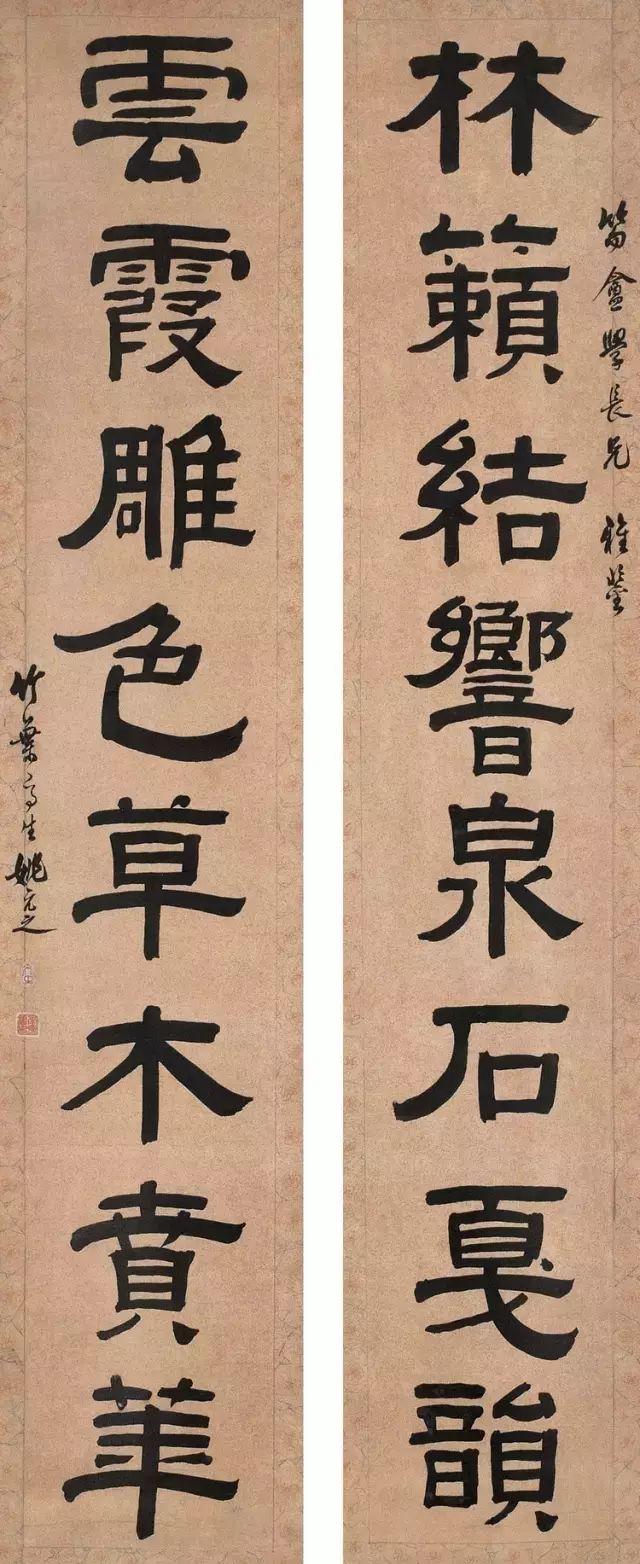 盦學長兄 雅鑒
林籟結響泉石戛韻
雲霞雕色草木賁華
竹葉亭生姚元之